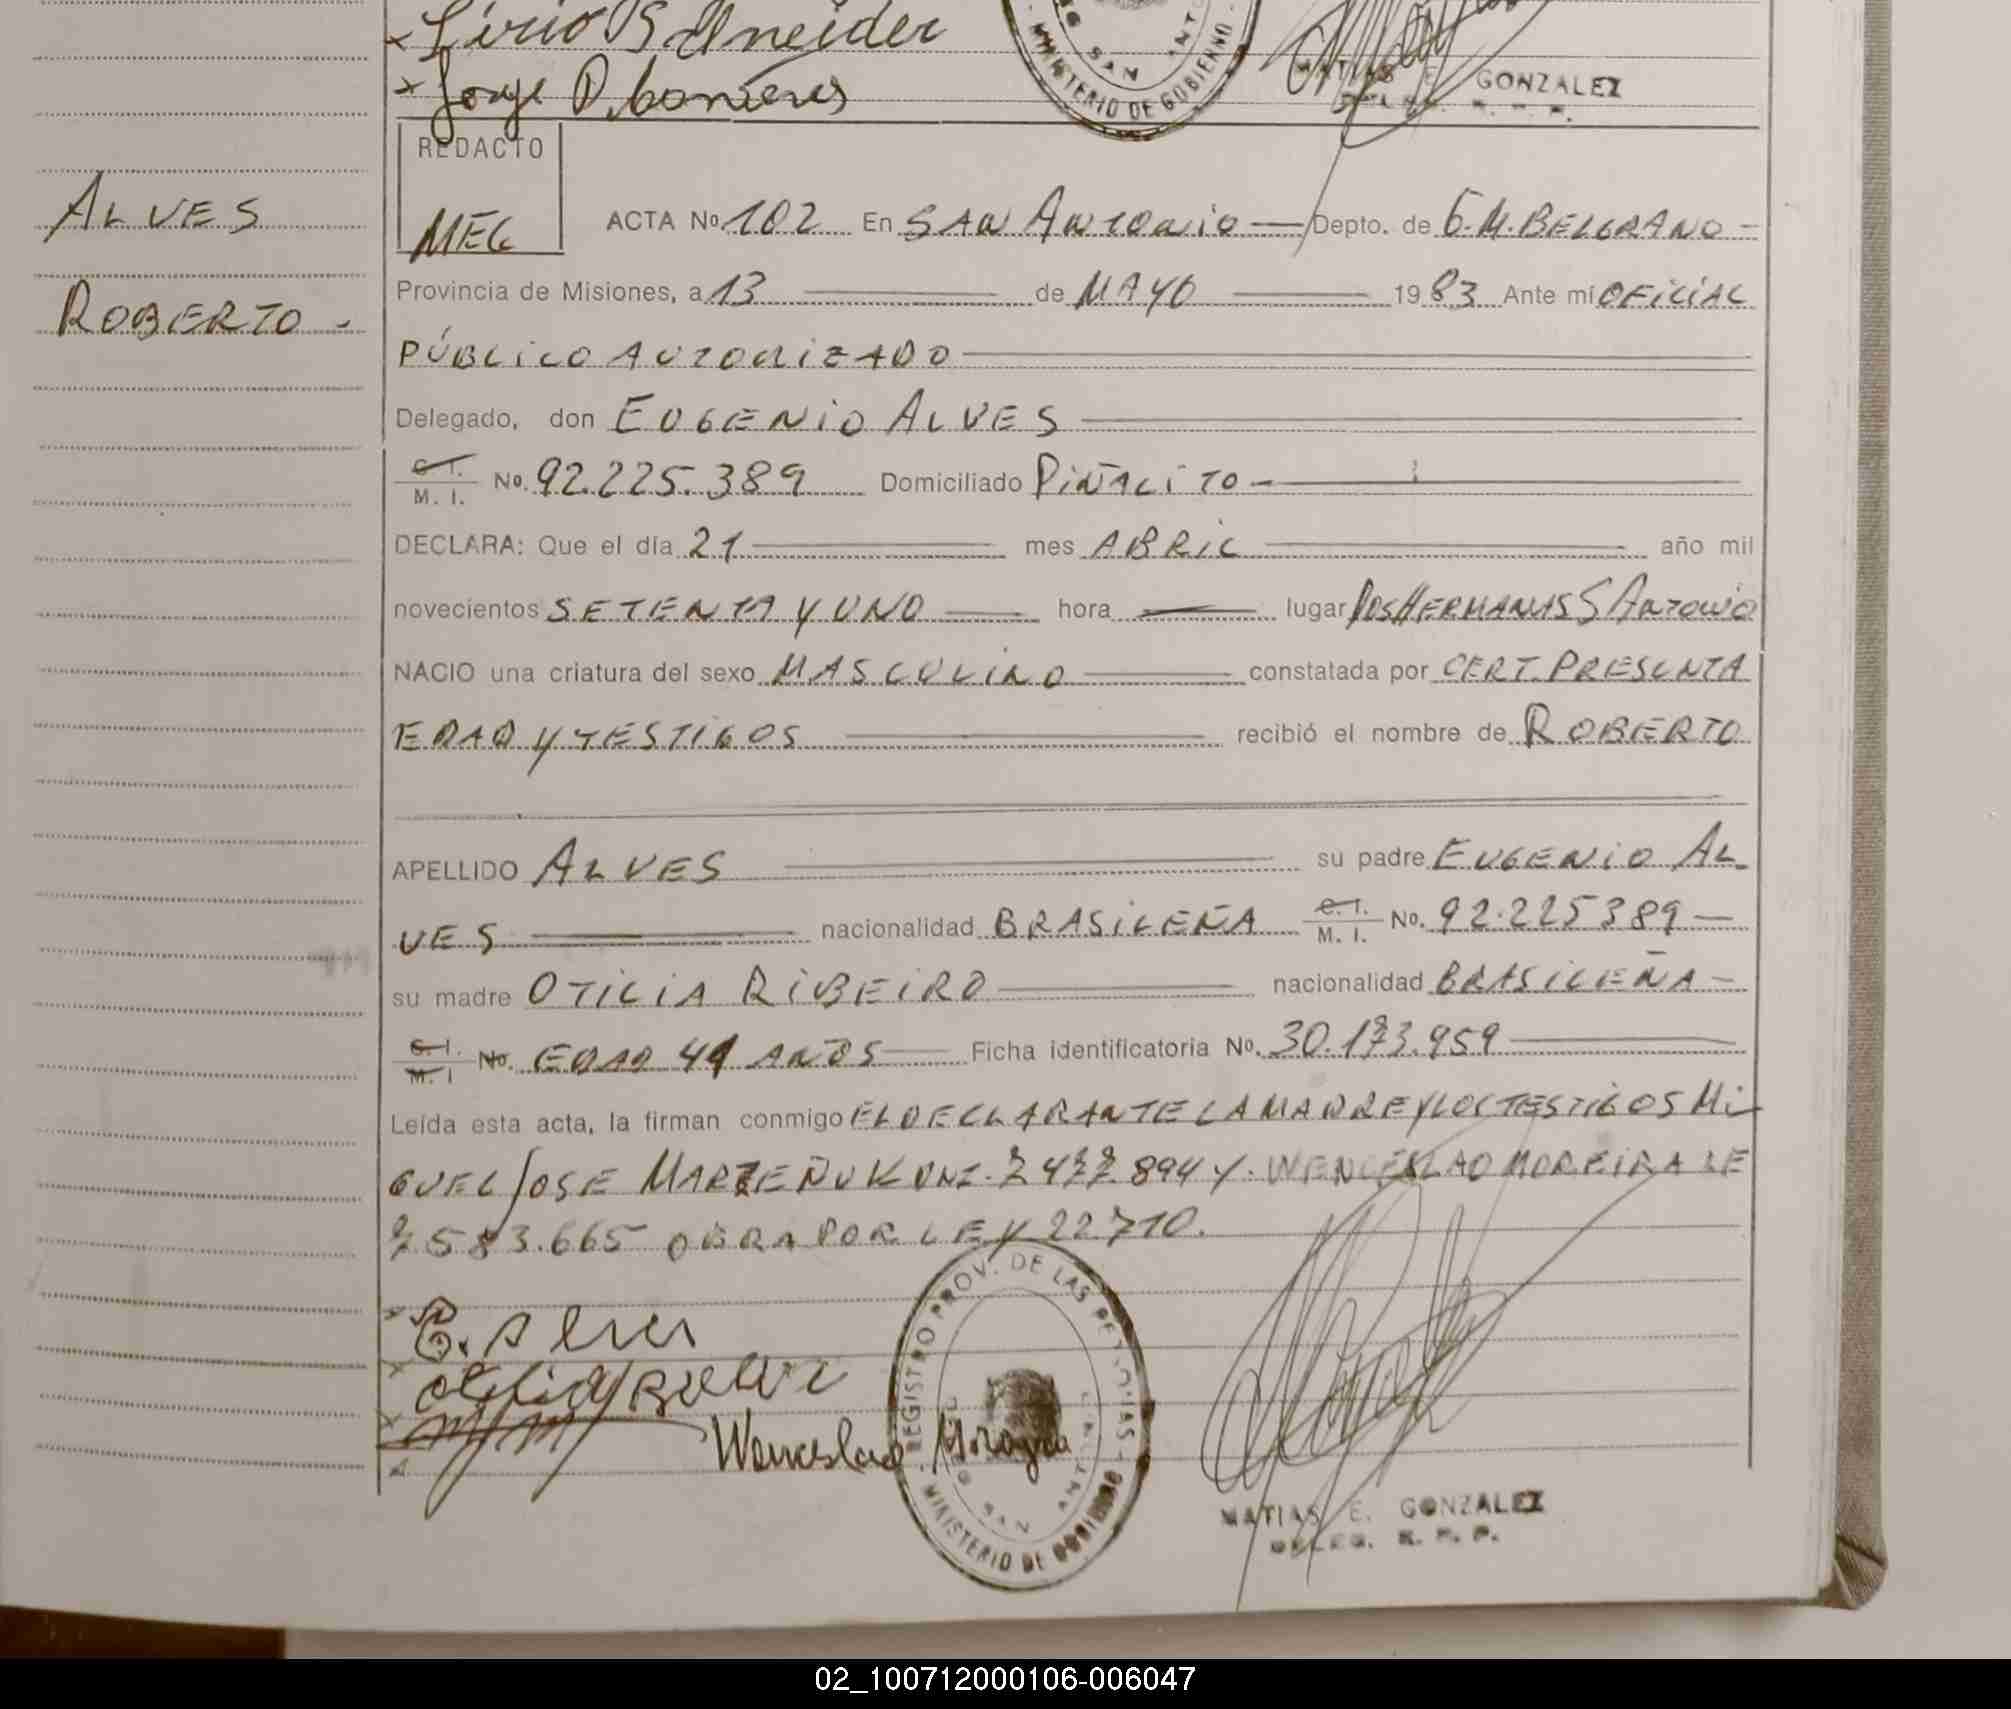 Lirio B Schneider
Jorge D.
MINISTERIO DE GOBIERNO
SAN ANTO
MATIAS E. GONZALEZ
REDACTO
MEG
ALVES
ROBERTO -
ACTA Nº 102 En SAN ANTONIO — Depto. de G.M. BELGRANO -
Provincia de Misiones, a 13 de MAYO 1983 Ante mí OFICIAL
PÚBLICO AUTORIZADO
Delegado, don EUGENIO ALVES
C. I. M. I. Nº. 92.225.389 Domiciliado PIÑALITO -
DECLARA: Que el día 21 mes ABRIL año mil
novecientos SETENTA Y UNO hora — lugar DOS HERMANAS S ANTONIO
NACIO una criatura del sexo MASCULINO constatada por CERT. PRESUNTA
EDAD Y TESTIGOS recibió el nombre de ROBERTO
APELLIDO ALVES su padre EUGENIO AL
VES nacionalidad BRASILEÑA C. I. M. I. Nº. 92.225389 —
su madre OTILIA RIBEIRO nacionalidad BRASILEÑA -
C. I. M. I Nº. EDAD 41 AÑOS Ficha identificatoria Nº. 30.173.959
Leída esta acta, la firman conmigo EL DECLARANTE LA MADRE Y LOS TESTIGOS MI
GUEL JOSE MARZEÑUK DNI. 7477.894 Y. WENCESLAO MOREIRA LE
7583.665 OBRA POR LEY 22.710.
E. Alves
Wenceslao
REGISTRO PROV. DE LAS PERSONAS
MINISTERIO DE GOBIERNO
SAN ANTONIO
MATIAS E. GONZALEZ
DELEG. R. P. P.
02_100712000106-006047